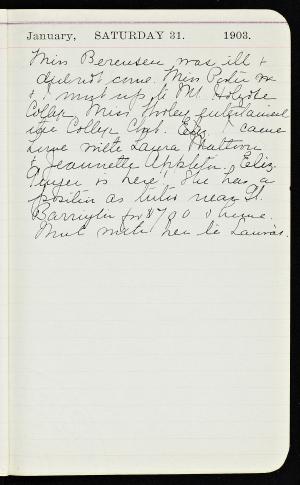 January, SATURDAY 31. 1903.
Miss Berensen was ill &
did not come. Miss Porter
& I went up to Mt Holyoke
College. Miss entertained
the College Club. I came
home with Laura
& Jeannette Appleton. Eliz.
is here! She has a
position as tutor near Gt.
Barrington for $700 & home.
with her to Laura's.